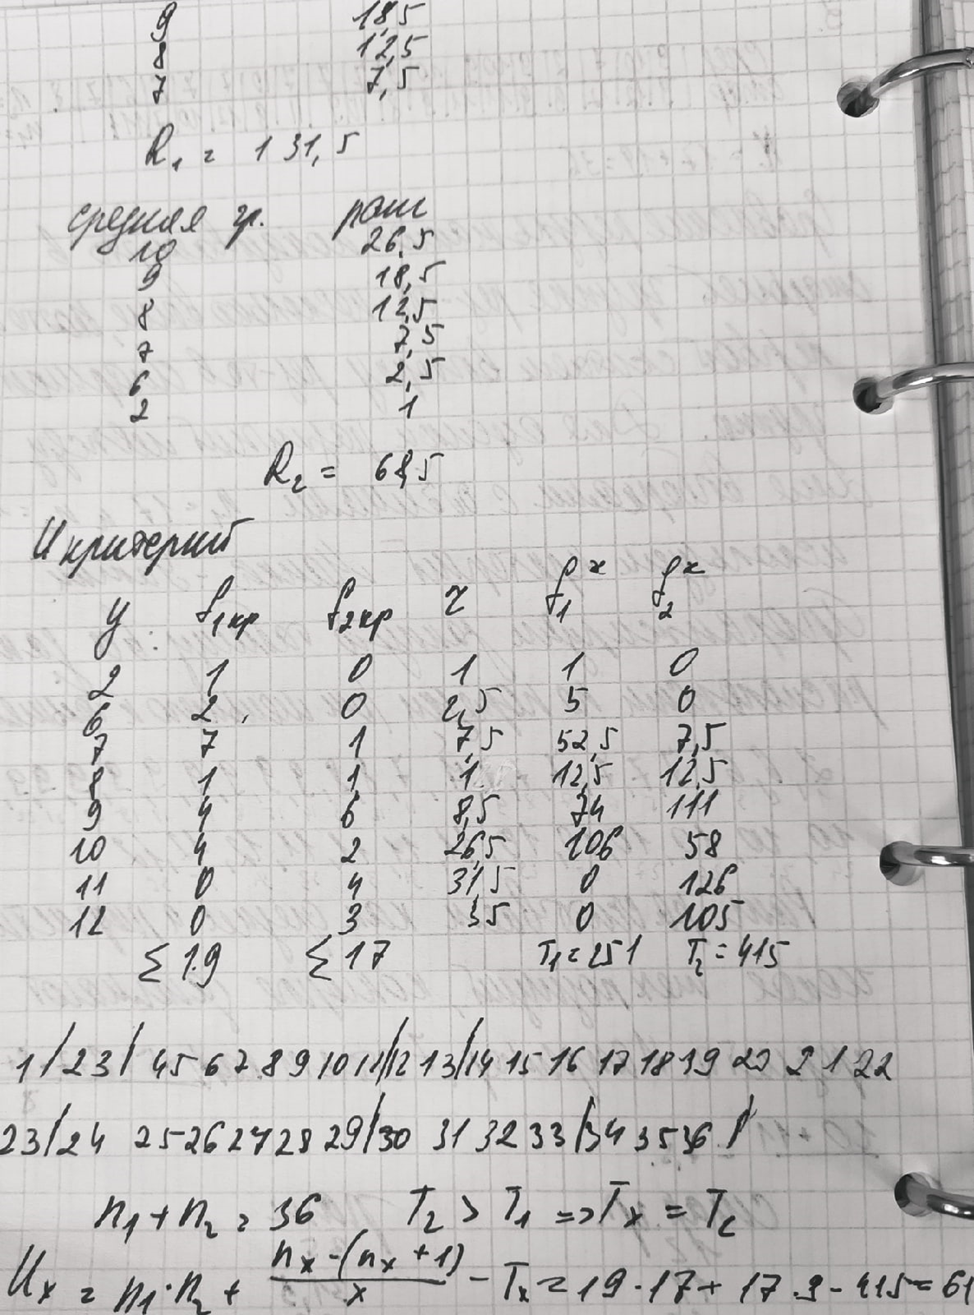 9 18,5
8 12,5
7 7,5
R₁ = 131,5
средняя гр. ранг
10 26,5
9 18,5
8 12,5
7 7,5
6 2,5
2 1
R₂ = 68,5
U критерий
y f₁кр f₂кр r f₁ˣ f₂ˣ
2 1 0 1 1 0
6 2 0 2,5 5 0
7 7 1 7,5 52,5 7,5
8 1 1 1 12,5 12,5
9 4 6 8,5 74 111
10 4 2 26,5 106 58
11 0 4 31,5 0 126
12 0 3 35 0 105
Σ 19 Σ 17 T₁=251 T₂=415
1/23/ 45 6 7 8 9 10 11//12 13/14 15 16 17 18 19 20 21 22
23/24 25 26 27 28 29/30 31 32 33/34 35 36/
n₁+n₂=36 T₂>T₁ =>Tₓ=T₂
Uₓ = n₁·n₂ + (nₓ-(nₓ+1))/x - Tₓ = 19·17+17·9-415=61